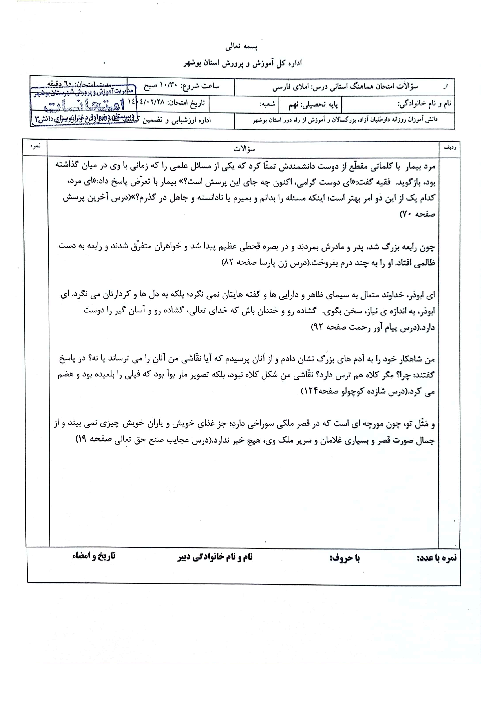 بسمه تعالی
اداره کل آموزش و پرورش استان بوشهر
سؤالات امتحان هماهنگ استانی درس: املای فارسی
ساعت شروع: ۱۰/۳۰ صبح
مدت امتحان: ۶۰ دقیقه
نام و نام خانوادگی:
پایه تحصیلی: نهم
شعبه:
تاریخ امتحان: ۱۴۰۴/۰۲/۲۸
دانش آموزان روزانه، داوطلبان آزاد، بزرگسالان و آموزش از راه دور استان بوشهر
اداره ارزشیابی و تضمین
ردیف
سؤالات
نمره
مرد بیمار با کلماتی مقطّع از دوست دانشمندش تمنّا کرد که یکی از مسائل علمی را که زمانی با وی در میان گذاشته
بود، بازگوید. فقیه گفت:«ای دوست گرامی، اکنون چه جای این پرسش است؟» بیمار با تعرّض پاسخ داد:«ای مرد،
کدام یک از این دو امر بهتر است؛ اینکه مسئله را بدانم و بمیرم یا نادانسته و جاهل در گذرم؟»(درس آخرین پرسش
صفحه ۷۰)
چون رابعه بزرگ شد، پدر و مادرش بمردند و در بصره قحطی عظیم پیدا شد و خواهران متفرّق شدند و رابعه به دست
ظالمی افتاد. او را به چند درم بفروخت.(درس زن پارسا صفحه ۸۲)
ای ابوذر، خداوند متعال به سیمای ظاهر و دارایی ها و گفته هایتان نمی نگرد؛ بلکه به دل ها و کردارتان می نگرد. ای
ابوذر، به اندازه ی نیاز، سخن بگوی. گشاده رو و خندان باش که خدای تعالی، گشاده رو و آسان گیر را دوست
دارد.(درس پیام آور رحمت صفحه ۹۲)
من شاهکار خود را به آدم های بزرگ نشان دادم و از آنان پرسیدم که آیا نقّاشی من آنان را می ترساند یا نه؟ در پاسخ
گفتند: چرا؟ مگر کلاه هم ترس دارد؟ نقّاشی من شکل کلاه نبود، بلکه تصویر مار بوآ بود که فیلی را بلعیده بود و هضم
می کرد.(درس شازده کوچولو صفحه۱۲۴)
و مَثَل تو، چون مورچه ای است که در قصر ملکی سوراخی دارد؛ جز غذای خویش و یاران خویش چیزی نمی بیند و از
جمال صورت قصر و بسیاری غلامان و سریر ملک وی، هیچ خبر ندارد.(درس عجایب صنع حق تعالی صفحه ۱۹)
نمره با عدد:
با حروف:
نام و نام خانوادگی دبیر
تاریخ و امضاء